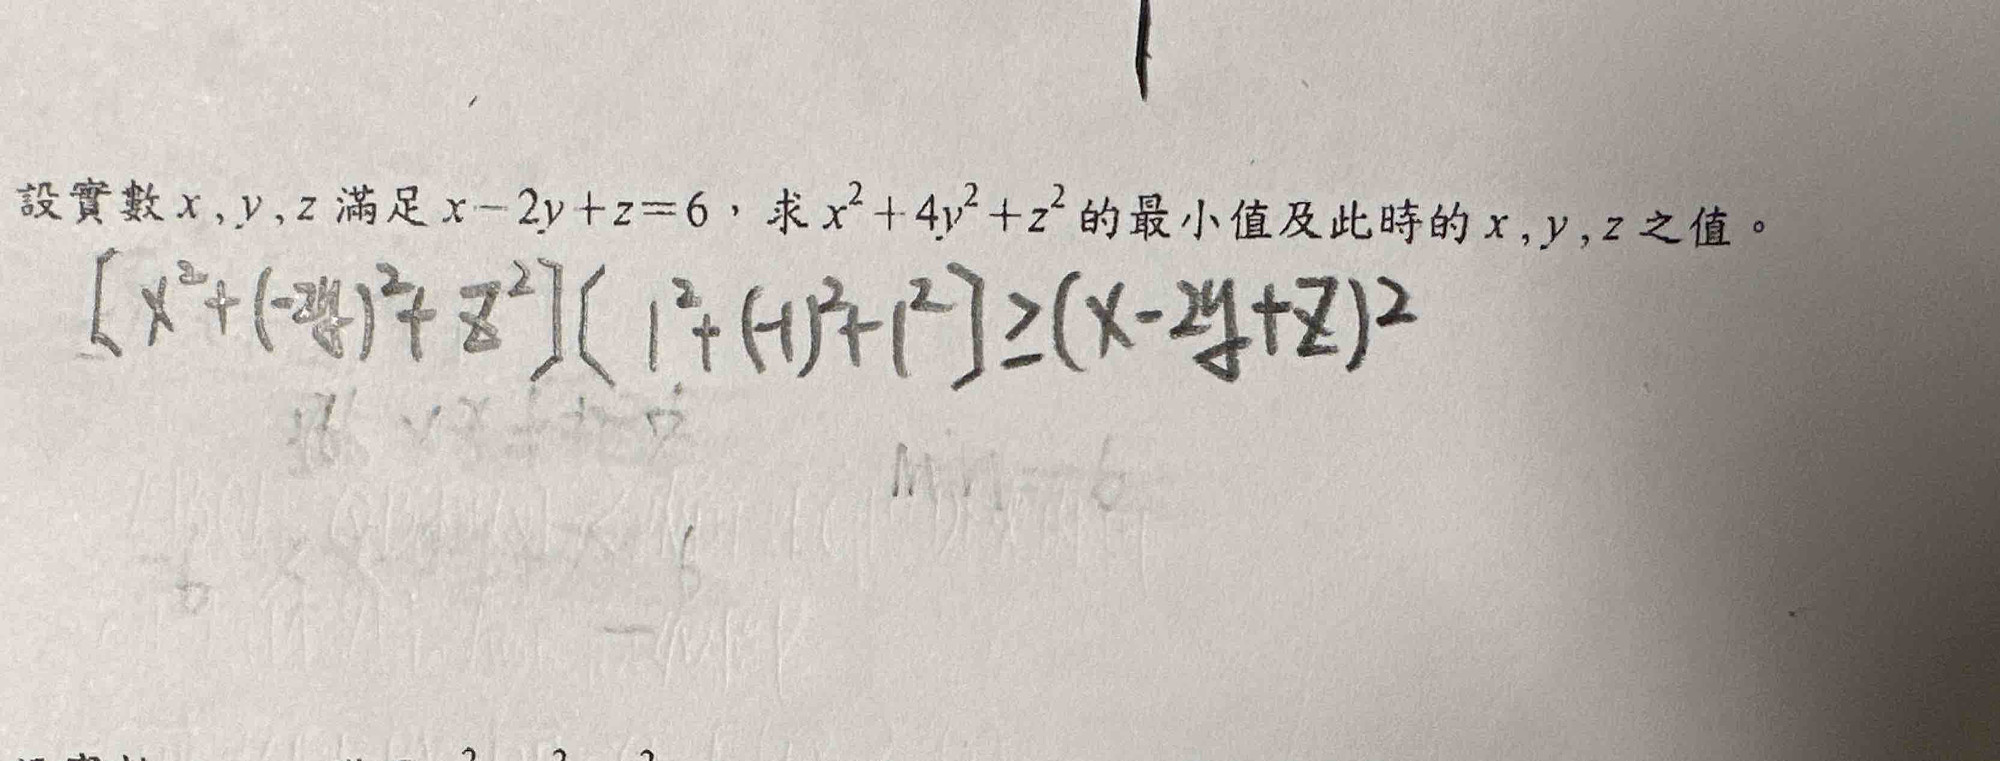 設實數 x , y , z 滿足 x－2y＋z＝6，求 x²＋4y²＋z² 的最小值及此時的 x , y , z 之值。
[x²+(-2y)²+z²][1²+(-1)²+1²]≥(x-2y+z)²